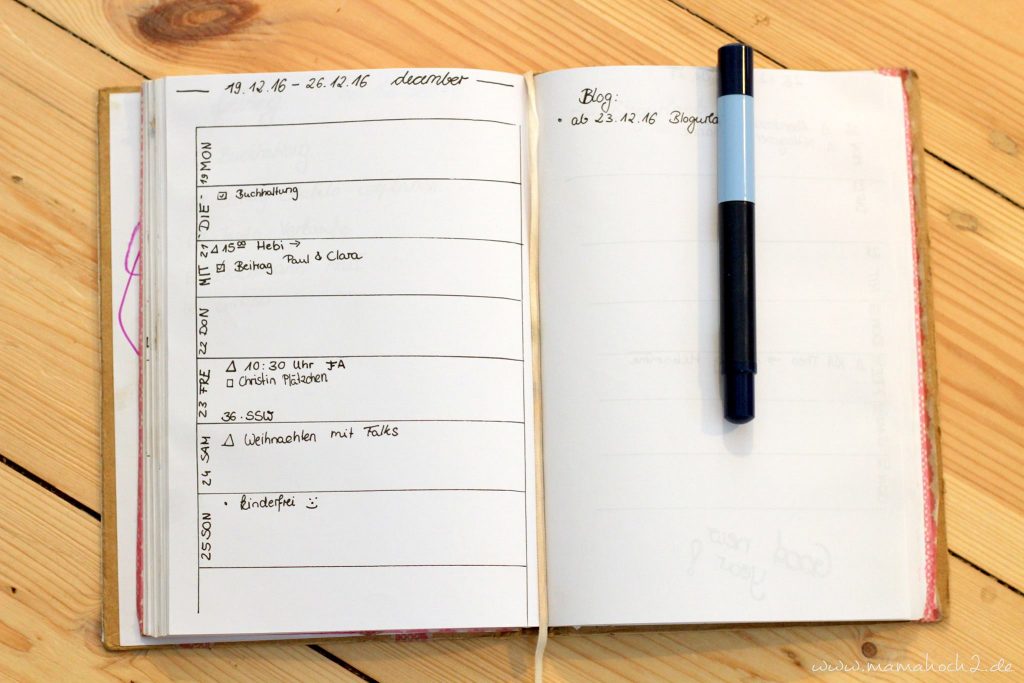 19.12.16 - 26.12.16 december
19 MON
DIE
☑ Buchhaltung
MIT 21
△ 15⁰⁰ Hebi →
☑ Beitrag Paul & Clara
22 DON
23 FRE
△ 10:30 Uhr FA
☐ Christin Plätzchen
36. SSW
24 SAM
△ Weihnachten mit Falks
25. SON
• kinderfrei :)
Blog:
• ab 23.12.16 Blogurla
Good new
year!
www.mamahoch2.de